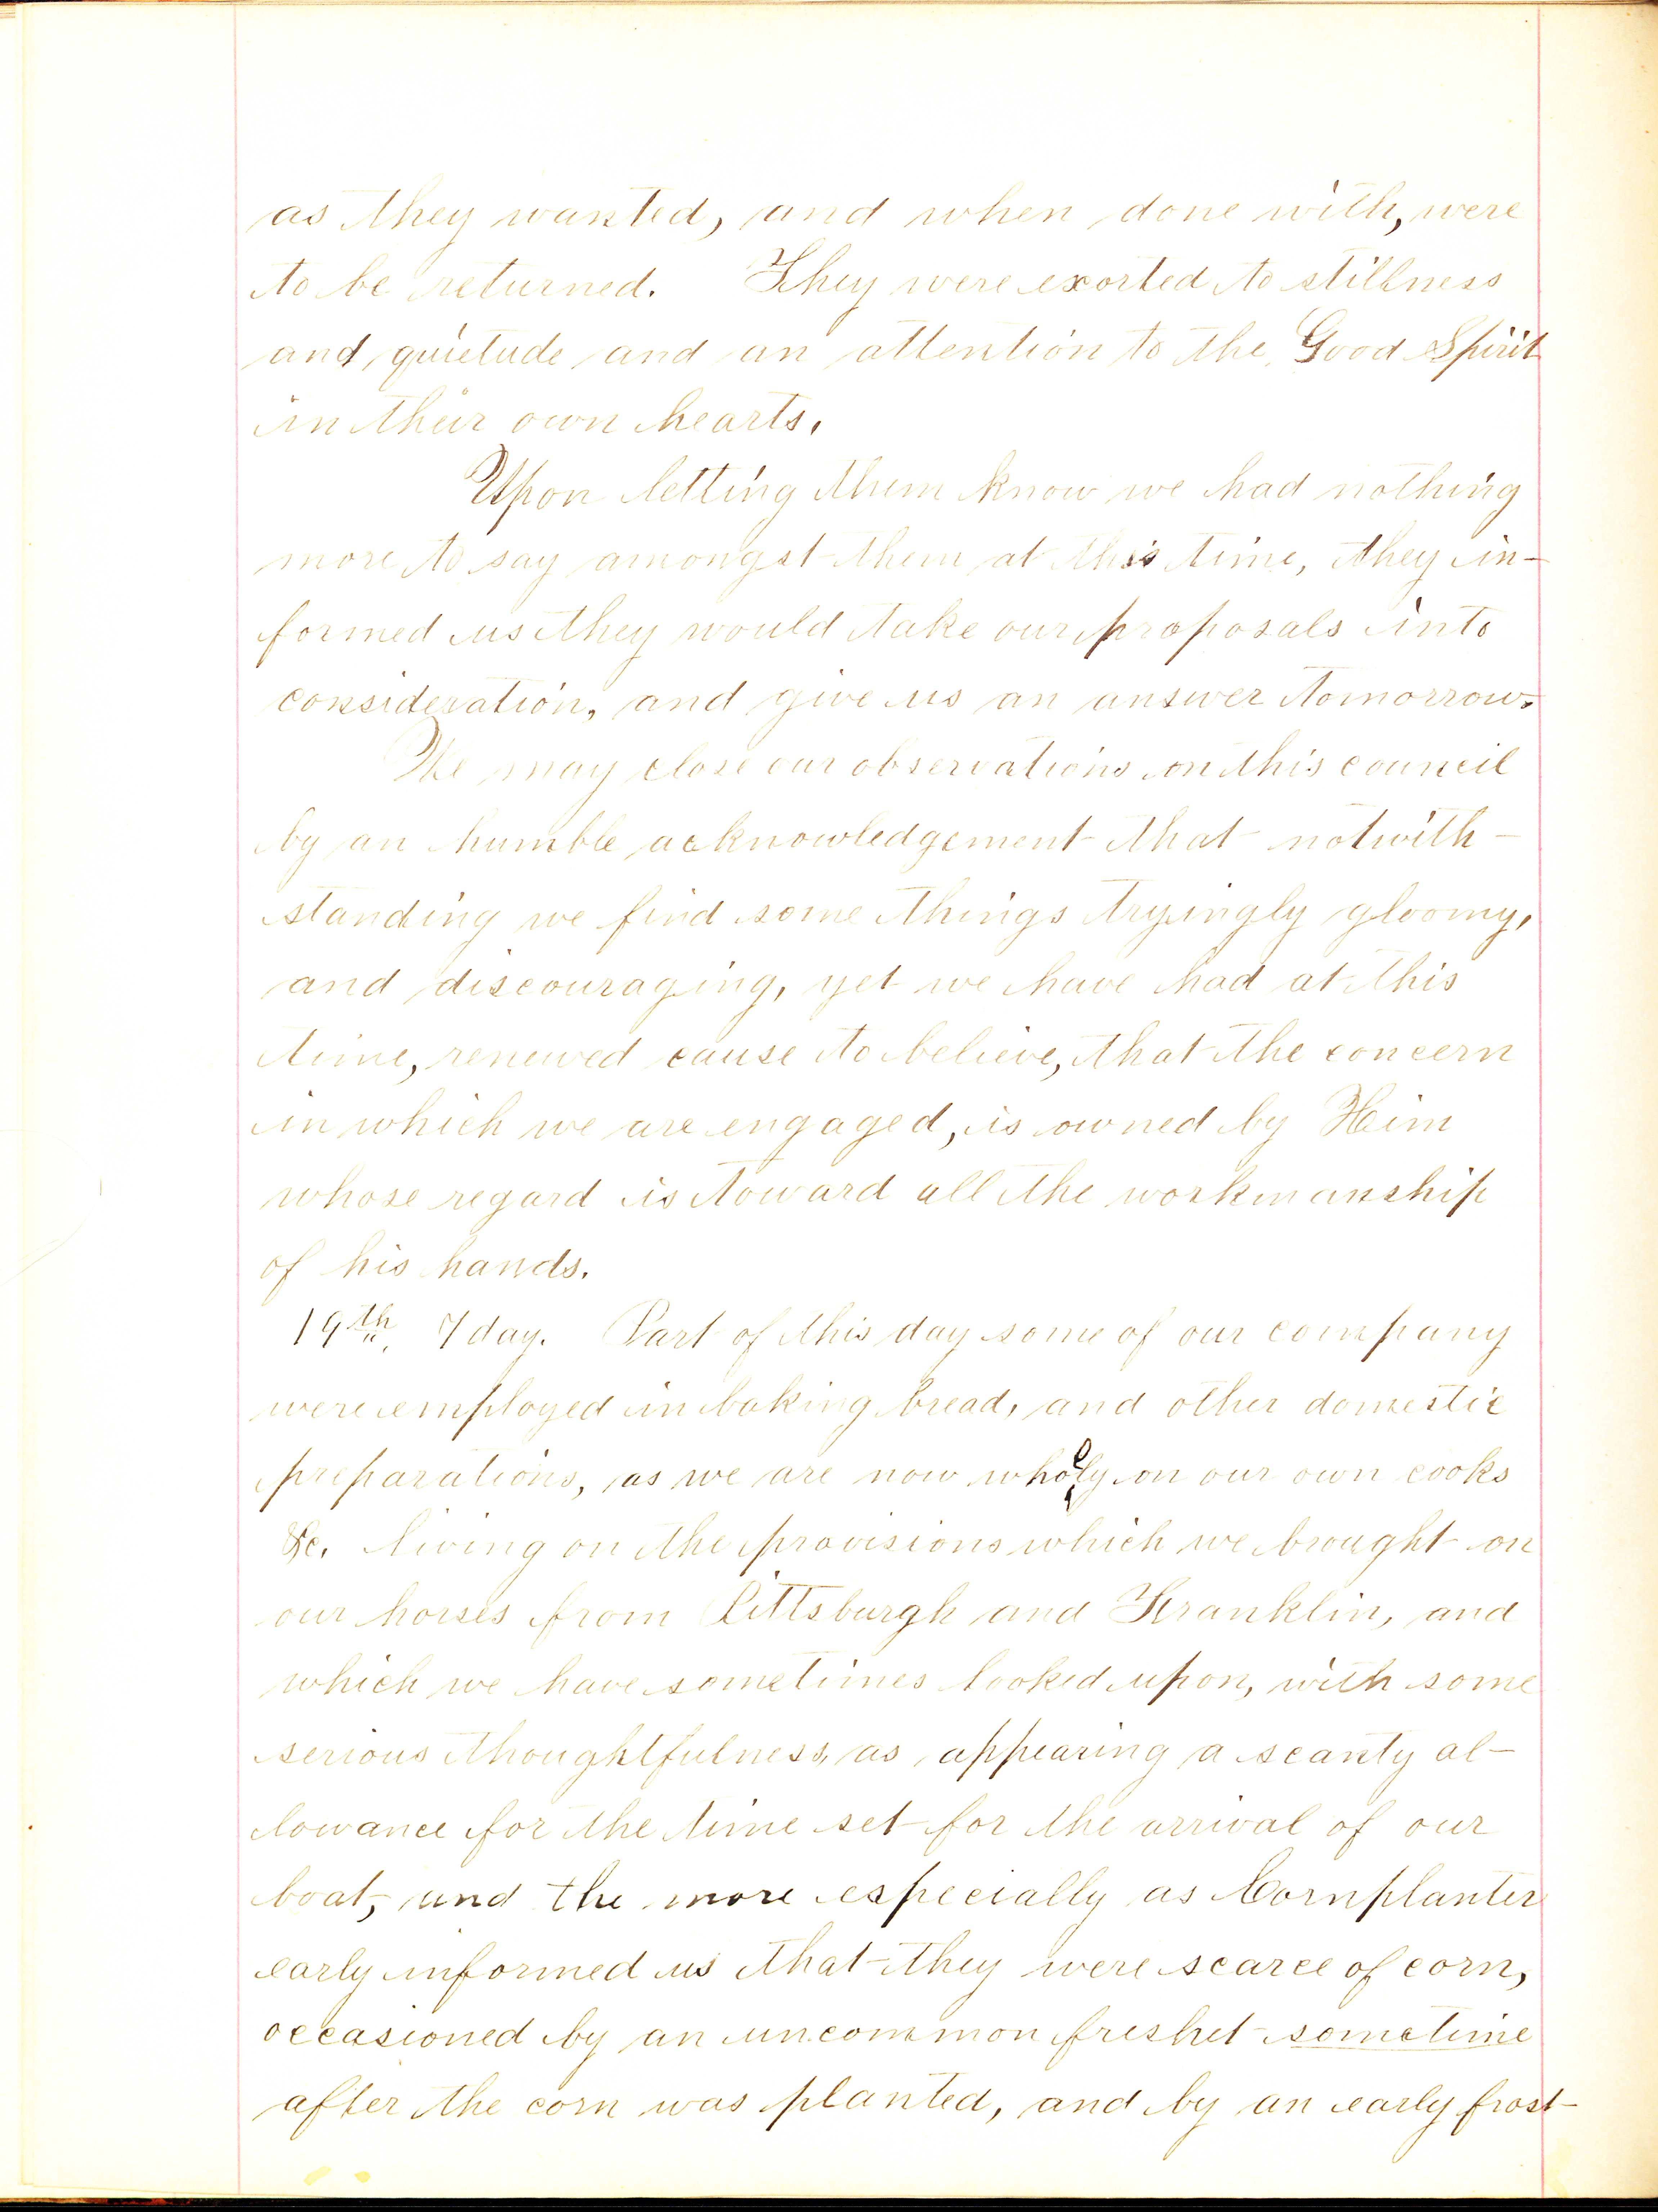 as they wanted, and when done with, were
to be returned. They were exorted to stillness
and quietude and an attention to the Good Spirit
in their own hearts.
Upon letting them know we had nothing
more to say amongst them at this time, they in-
formed us they would take our proposals into
consideration, and give us an answer tomorrow.
We may close our observations on this council
by an humble acknowledgement that notwith-
standing we find some things tryingly gloomy,
and discouraging, yet we have had at this
time, renewed cause to believe, that the concern
in which we are engaged, is owned by Him
whose regard is toward all the workmanship
of his hands.
19th, 7 day. Part of this day some of our company
were employed in baking bread, and other domestic
preparations, as we are now wholly on our own cooks
&c. living on the provisions which we brought on
our horses from Pittsburgh and Franklin, and
which we have sometimes looked upon, with some
serious thoughtfulness, as appearing a scanty al-
lowance for the time set for the arrival of our
boat, and the more especially as Cornplanter
early informed us that they were scarce of corn,
occasioned by an uncommon freshet sometime
after the corn was planted, and by an early frost-